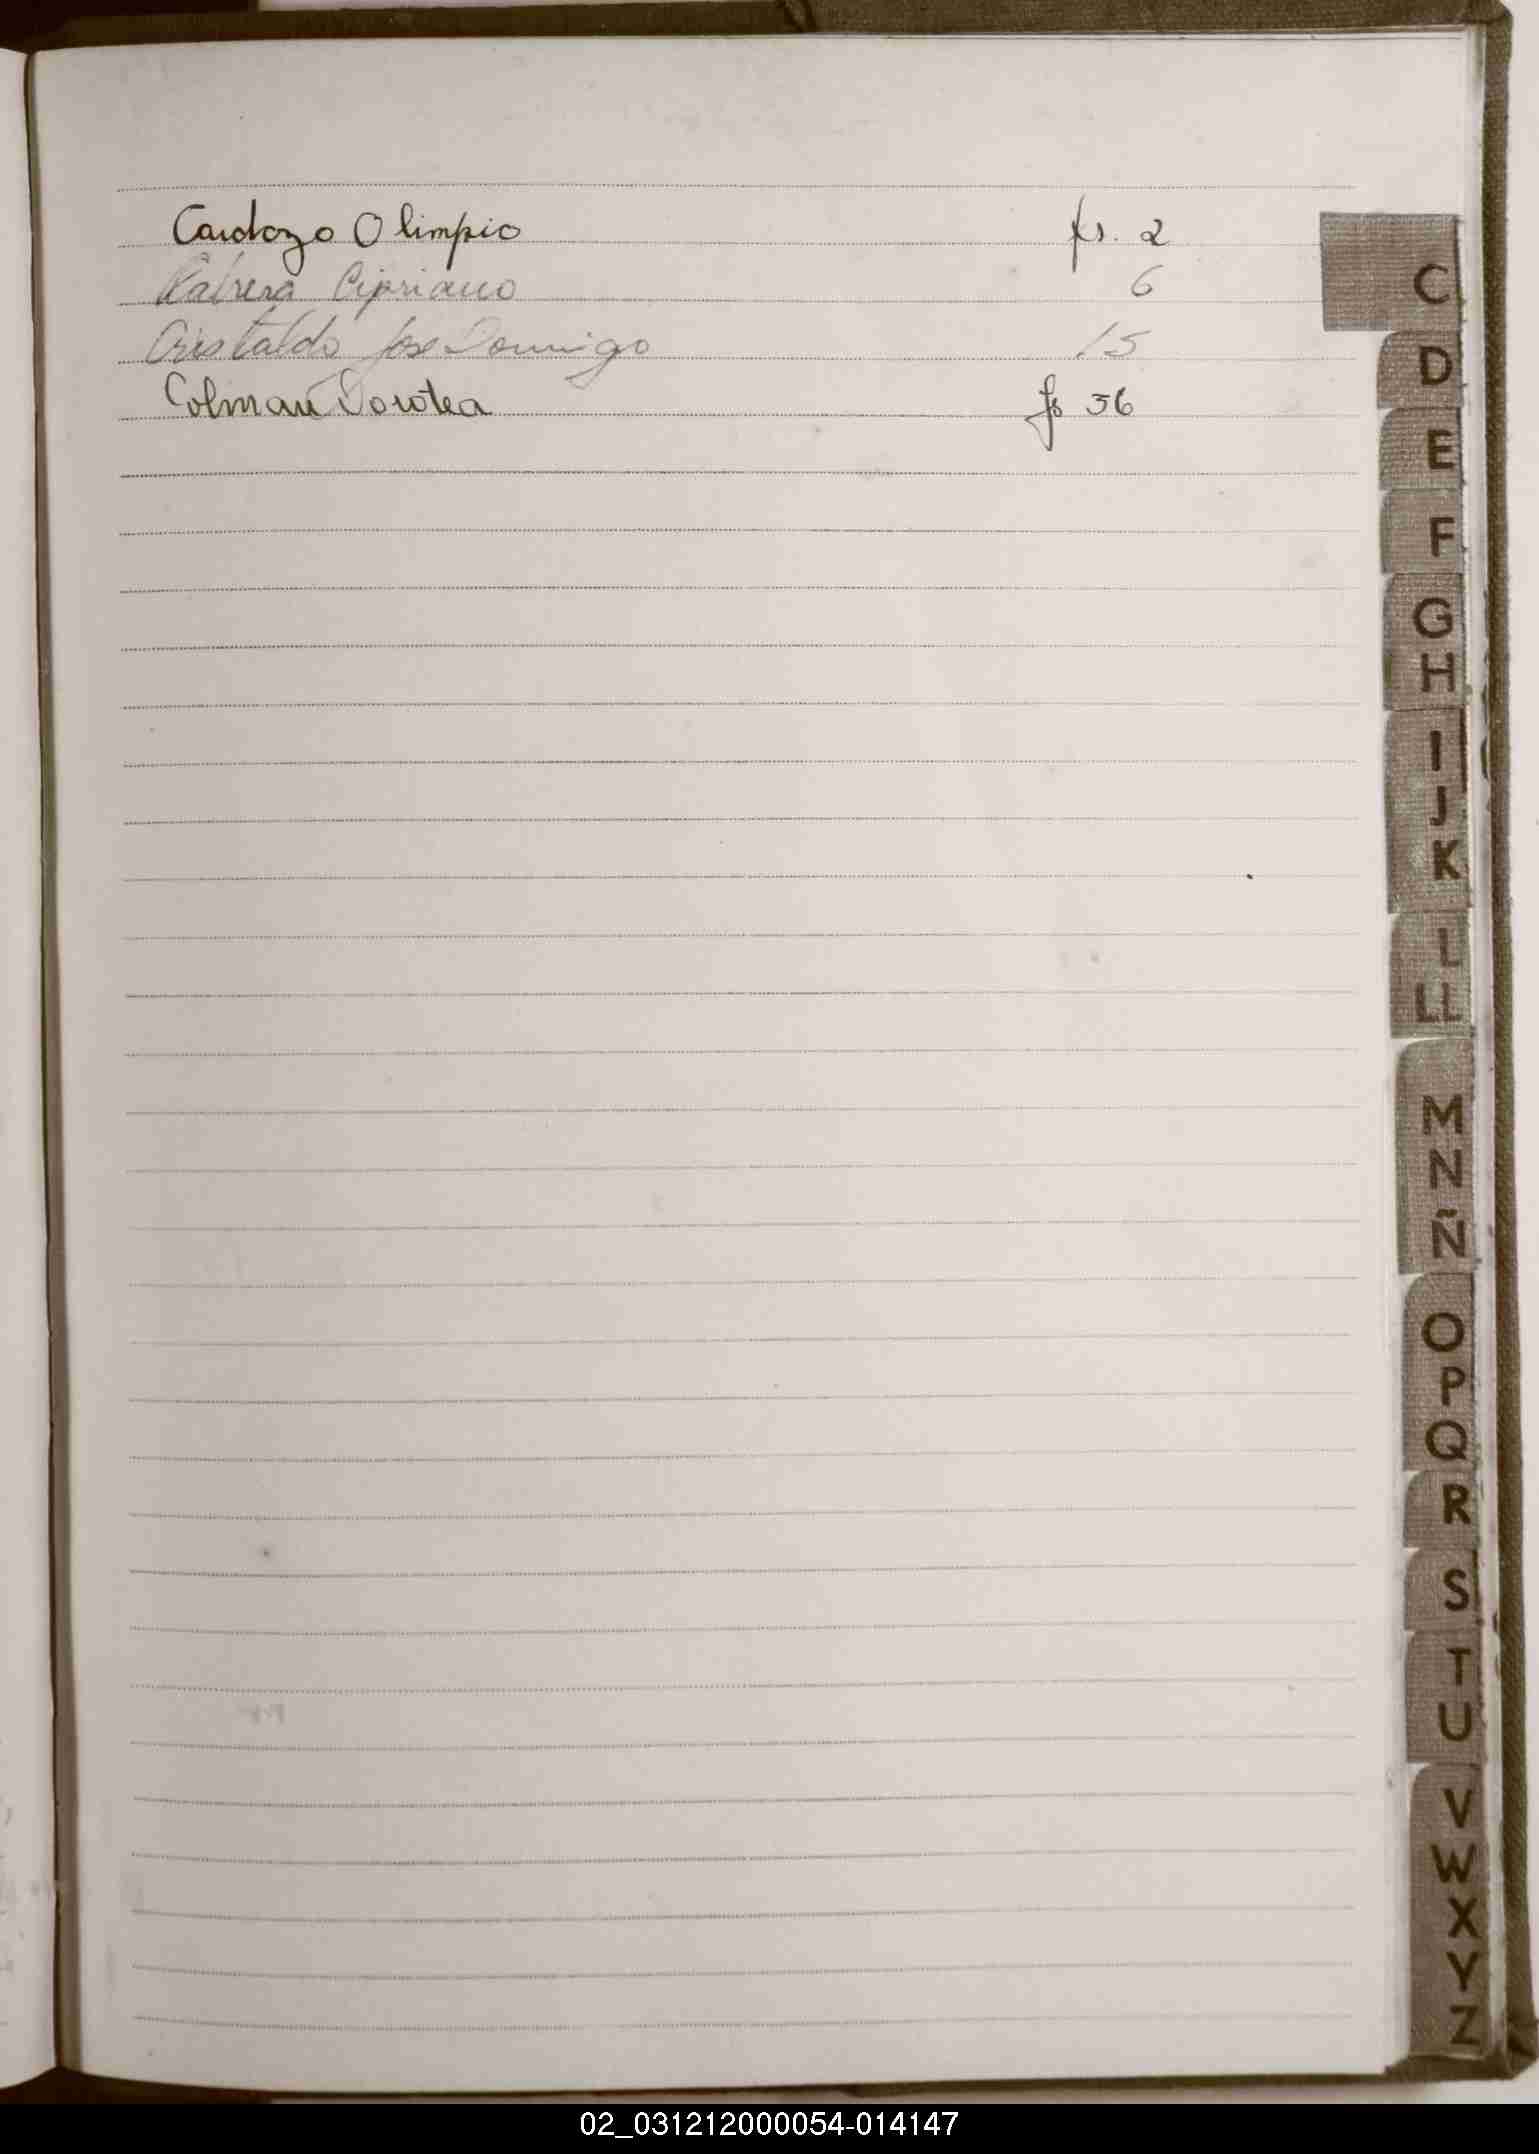 Cardozo Olimpio fs. 2
Cabrera Cipriano 6
Cristaldo Jose Domingo 15
Colman Dorotea fs 36
C
D
E
F
G
H
I
J
K
L
LL
M
N
Ñ
O
P
Q
R
S
T
U
V
W
X
Y
Z
02_031212000054-014147